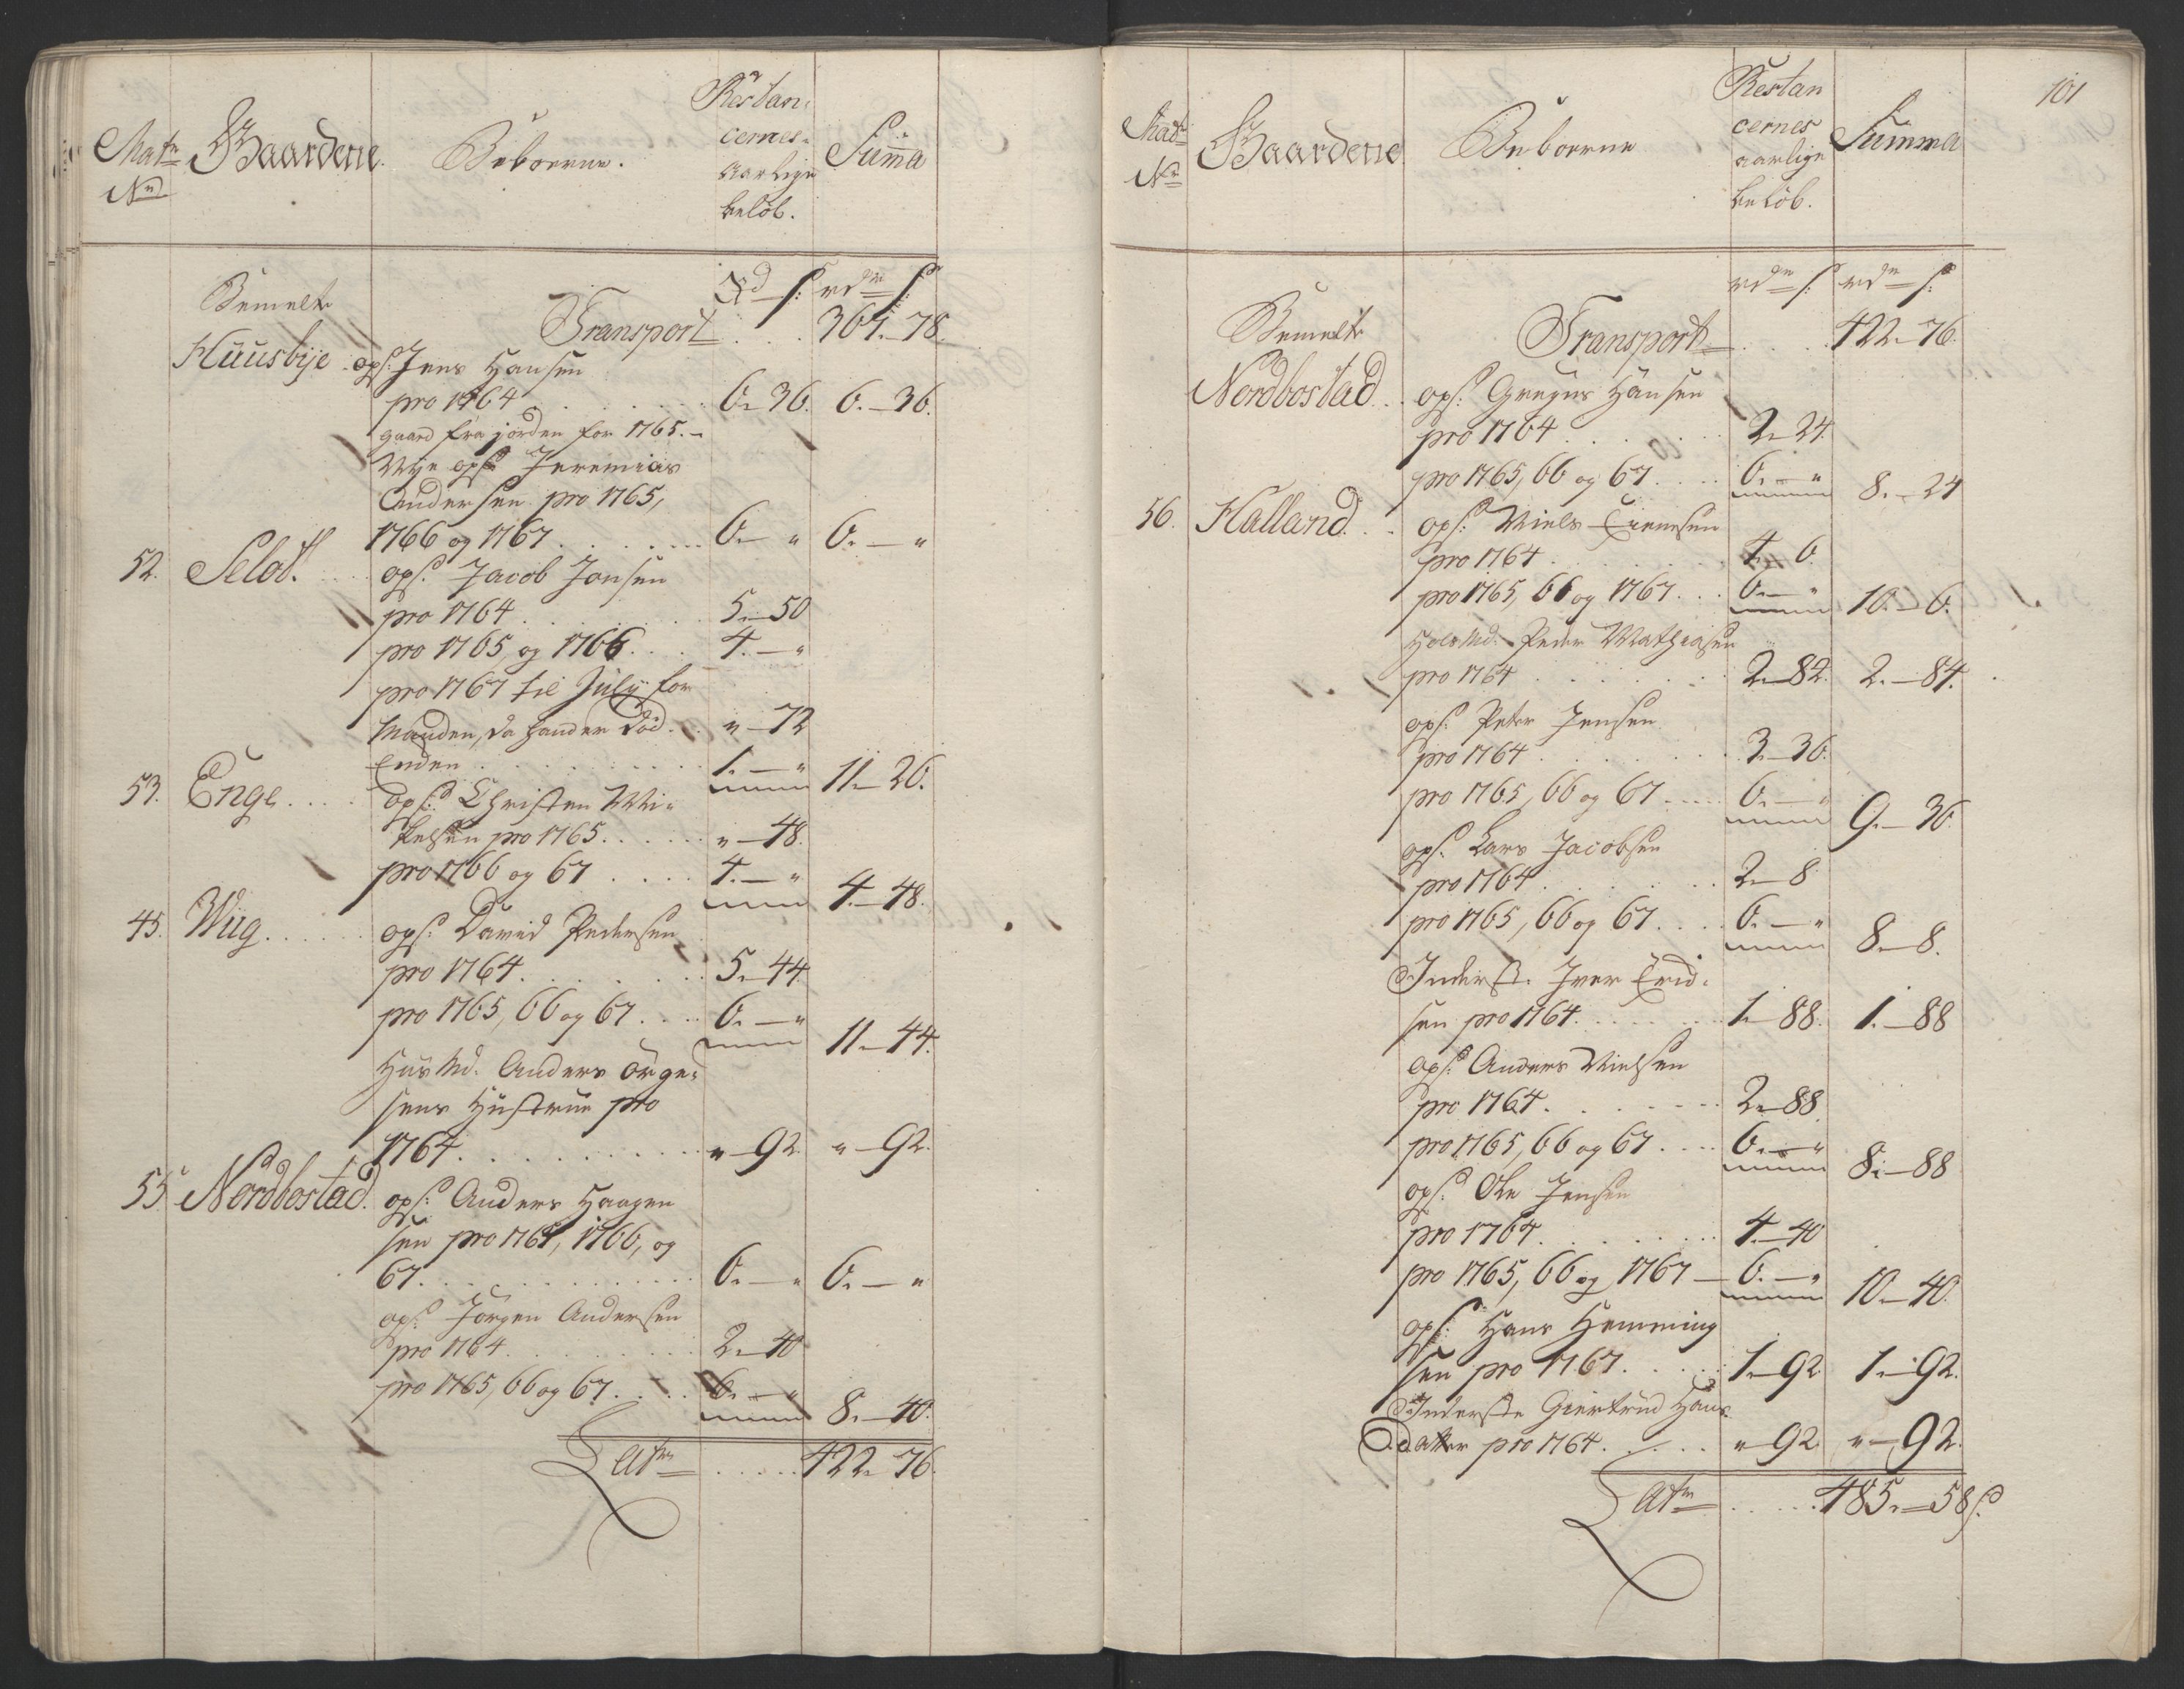 Matr
No
Gaardene.
Beboerne.
Restan-
cernes
aarlige
beløb.
Summa
Rd s: rdr s:
Bemelte
Transport . . . 367.-78.
Huusbye . ops: Jens Hansen
pro 1764 . . . . 6.-36. 6.-36.
gaard fra jorden for 1765.-
Nye ops: Jeremias
Andersen pro 1765,
1766 og 1767 . . . . 6.- " 6.- "
52. Selot. . . . ops: Jacob Jonsen
pro 1764 . . . . 5.-50
pro 1765, og 1766. . . 4.- "
pro 1767 til July for
Manden, da handen død . . "-72
Enken . . . . 1.- " 11.-26.
53. Enge . . . . ops: Christen Mi-
kelsen pro 1765. . . . "-48.
pro 1766 og 67 . . . . 4.- " 4.-48.
45. Wiig . . . . ops: David Pedersen
pro 1764. . . . 5.-44.
pro 1765, 66 og 67 . . . 6.- " 11.-44.
Huusmd. Anders Örge-
sens Hustrue pro
1764. . . . "-92. "-92.
55. Nordbostad. ops: Anders Haagen
sen pro 1765, 1766, og
67. . . . 6.- " 6.- "
ops: Jörgen Andersen
pro 1764. . . . 2.-40
pro 1765, 66 og 67 . . . 6.- " 8.-40.
Latr . . . . 422.-76.
101
Matr
No
Gaardene
Beboerne
Restan
cernes
aarlige
beløb.
Summa
rdr s: rdr s:
Bemelte
Transport . . . 422.-76.
Nordbostad . . ops: Gregus Hansen
pro 1764 . . . . 2.-24.
pro 1765, 66 og 67. . . . 6.- " 8.-24
56. Halland. . . ops: Niels
pro 1764 . . . . 4.-6.
pro 1765, 66 og 1767. . . 6.- " 10.-6.
Peder Mathiasen
pro 1764 . . . . 2.-84. 2.-84.
ops: Peter Jensen
pro 1764 . . . . 3.-36.
pro 1765, 66 og 67 . . . 6.- " 9.-36.
ops: Lars Jacobsen
pro 1764 . . . . 2.-8
pro 1765, 66 og 67. . . . 6.- " 8.-8.
Inderst. Iver Erid-
sen pro 1764. . . . 1.-88. 1.-88
ops: Anders Nielsen
pro 1764. . . . 2.-88
pro 1765, 66 og 67 . . . 6.- " 8.-88
ops: Ole Jensen
pro 1764. . . . 4.-40
pro 1765, 66 og 1767 - 6.- " 10.-40.
ops: Hans Hemming
sen pro 1767. . . . 1.-92 1.-92.
Inderste Giertrud Hans
datter pro 1764. . . . "-92 "-92.
Latr . . . . 485.-58 s: